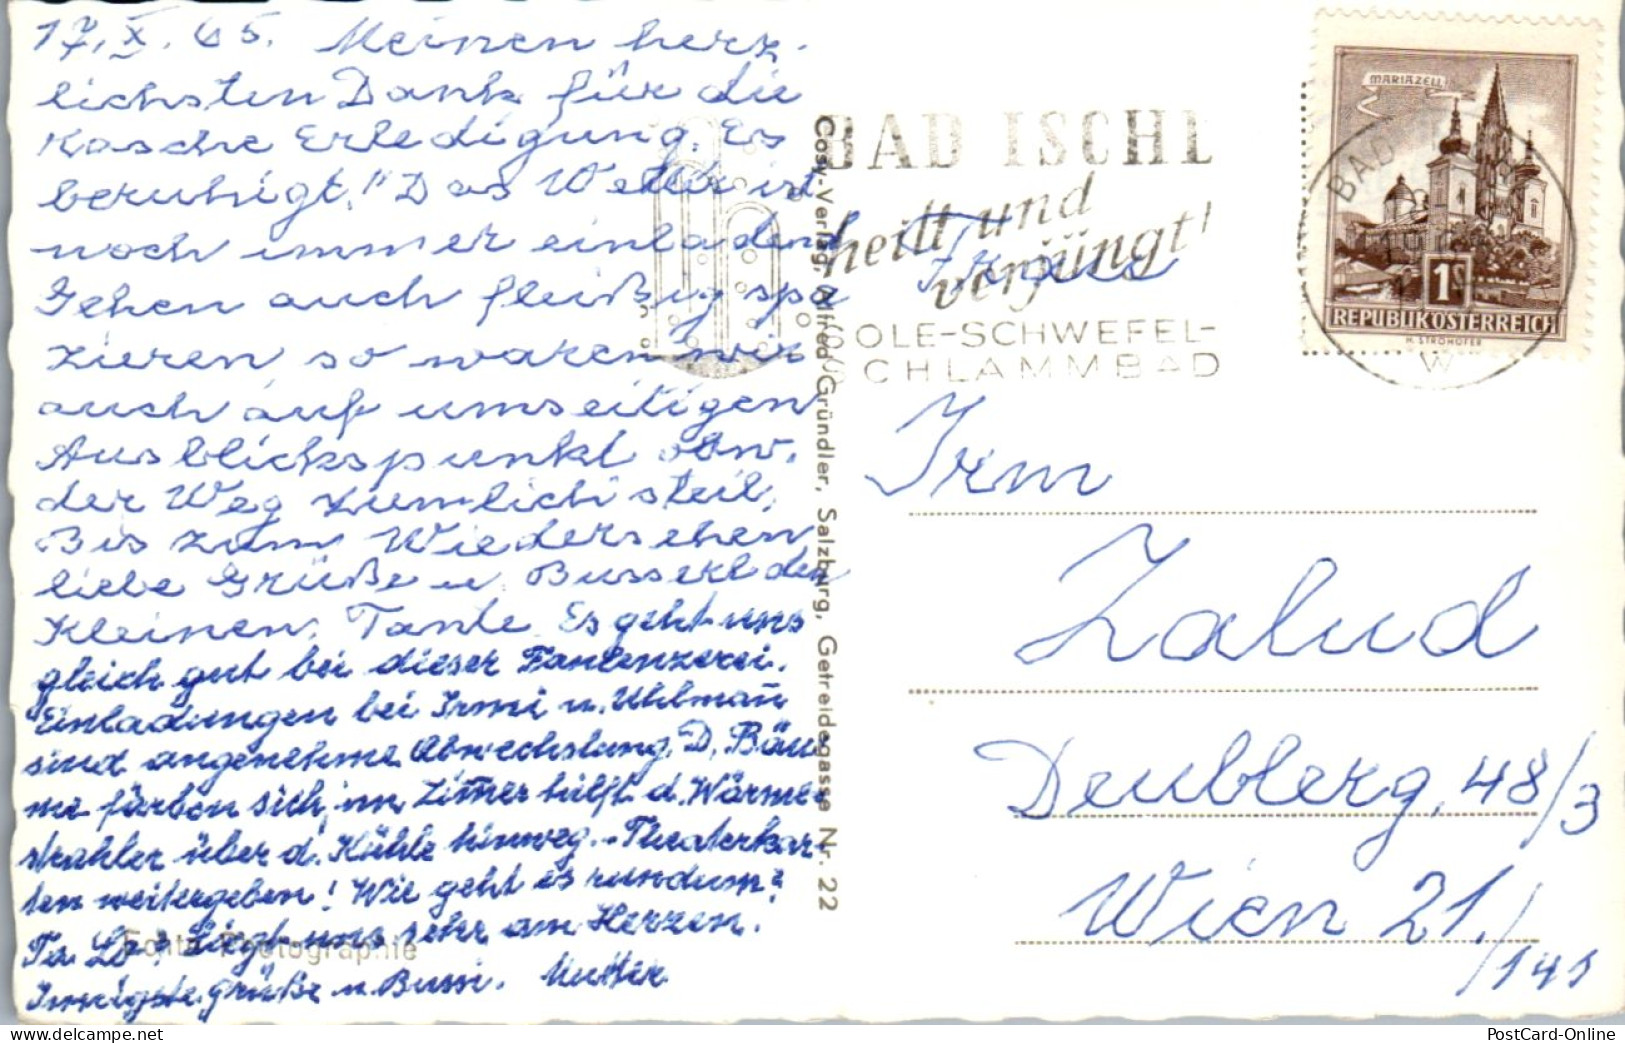 17.X.65. Meinen herz-
lichsten Dank für die
Rasche Erledigung. Es
beruhigt!" Das Wetter ist
noch immer einladend
Gehen auch fleißig spa
zieren so waren wir
auch auf umseitigen
Ausblickspunkt obw.
der Weg ziemlich steil,
Bis zum Wiedersehen
liebe Grüße u. Busserl den
Kleinen. Tante Es geht uns
gleich gut bei dieser Faulenzerei.
Einladungen bei Irmi u. Uhlmañ
sind angenehme Abwechslung. D. Bäu-
me färben sich, im Zim̃er hilft d. Wärme-
strahler über d. Kühle hinweg. - Theaterkar-
ten weitergeben! Wie geht es rundum?
Ta Liegt uns sehr am Herzen.
Innigste Grüße u. Bussi. Mutter
Echte Photographie
Cosy-Verlag, Alfred Gründler, Salzburg, Getreidegasse Nr. 22
BAD ISCHL
heilt und
verjüngt!
SOLE-SCHWEFEL-
SCHLAMMBAD
MARIAZELL
1S
REPUBLIK ÖSTERREICH
H. STROHOFER
BAD
W
Irm
Zalud
Deublerg. 48/3
Wien 21.
/141